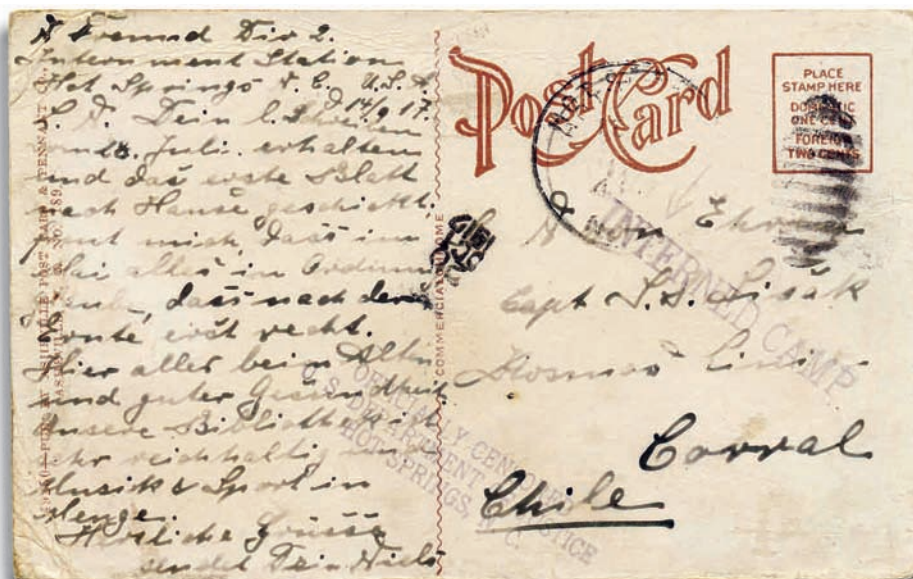 Fremud Div 2.
Internment Station
Hot Springs N. C. U.S.A.
14/9 17.
Dein l. Schreiben
Juli. erhalten
und das erste Blatt
nach Hause geschickt.
mich, dass im
Mai alles in Ordnung
daß nach der
erst recht.
Hier alles beim Alten
und guter Gesundheit.
Unsere Bibliothek ist
sehr reichhaltig und
Musik & Sport in
Menge.
Herzliche Grüsse
sendet Dein Niels
COMMERCIALCHROME
Post Card
PLACE
STAMP HERE
DOMESTIC
ONE CENT
FOREIGN
TWO CENTS
INTERNED CAMP
von
Capt S.S.
Kosmos Linie
Corral
Chile
OFFICIALLY CENSORED
U.S. DEPARTMENT OF JUSTICE
HOT SPRINGS, N. C.